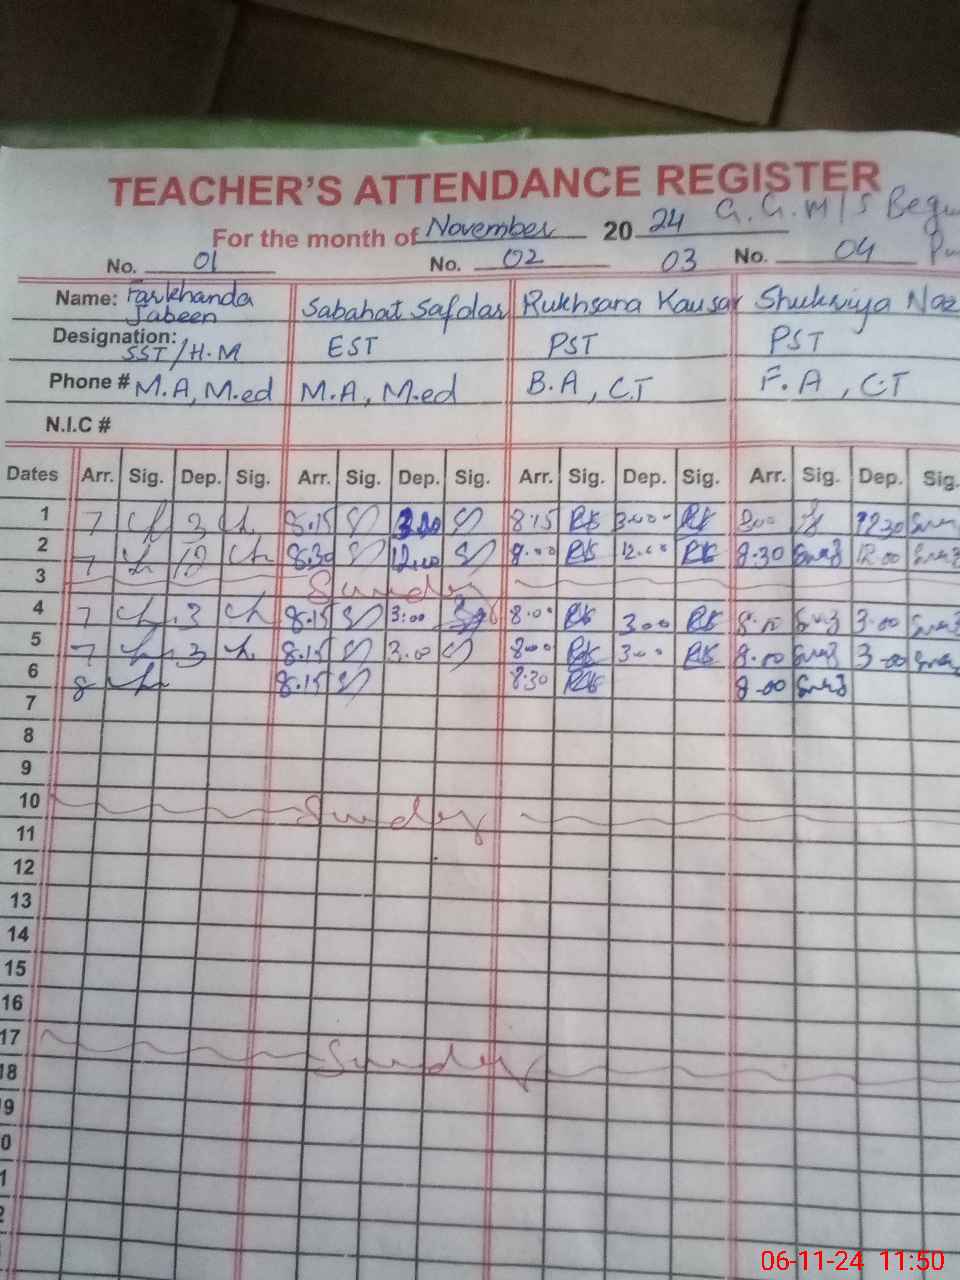 TEACHER'S ATTENDANCE REGISTER
For the month of November 2024 G.G.M/S
No. 01 No. 02 03 No. 04
Name: Farkhanda Jabeen Sabahat Safdar Rukhsana Kausar Shukriya Naz
Designation: SST/H.M EST PST PST
Phone # M.A, M.ed M.A, M.ed B.A, C.T F.A, C.T
N.I.C #
Dates Arr. Sig. Dep. Sig. Arr. Sig. Dep. Sig. Arr. Sig. Dep. Sig. Arr. Sig. Dep. Sig.
1 7 3 8.15 8.15 RK 3.00 RK
2 7 12 8.30 12.00 RK 12.00 RK 8.30 12.00
3 Sunday
4 7 3 8.15 3:00 8.00 RK 300 RK 3.00
5 7 3 8.15 3.00 800 RK 300 RK 3.00
6 8 8.15 8.30 RK
7
8
9
10 Sunday
11
12
13
14
15
16
17 Sunday
18
9
0
1
2
06-11-24 11:50